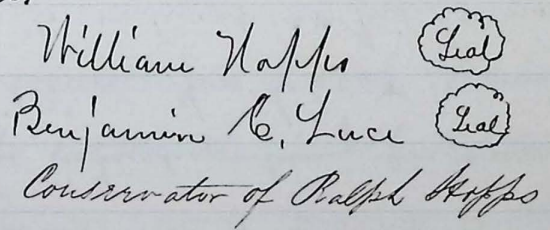 William Hopps Seal
Benjamin C. Luce Seal
Conservator of Ralph Hopps